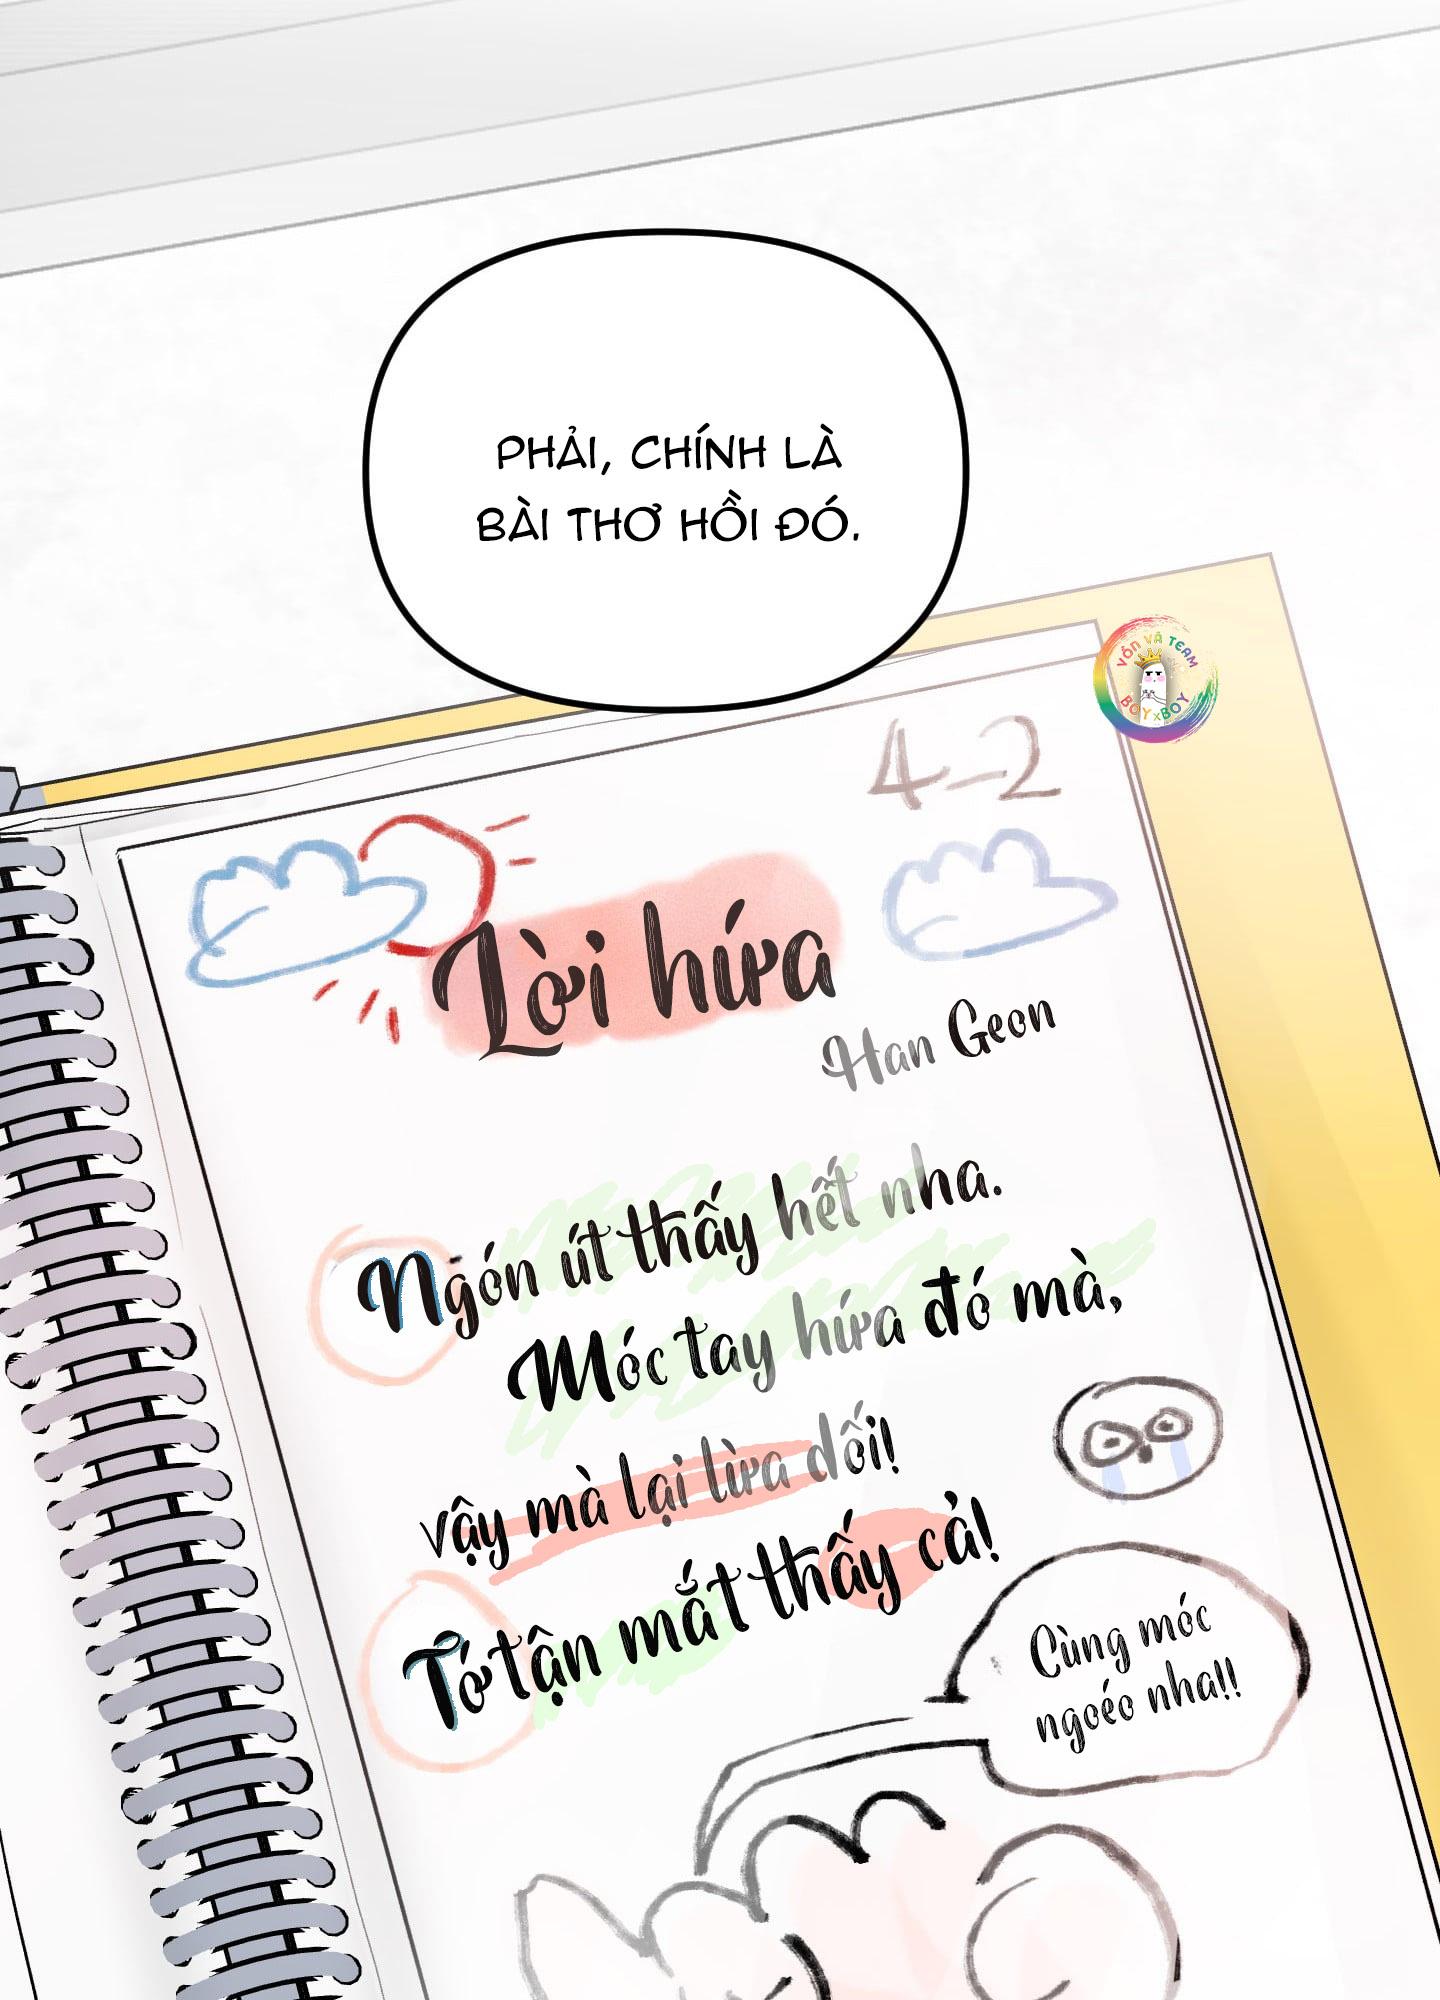 PHẢI, CHÍNH LÀ
BÀI THƠ HỒI ĐÓ.
VỒN VÃ TEAM
BOYxBOY
4-2
Lời hứa
Han Geon
Ngón út thấy hết nha.
Móc tay hứa đó mà,
vậy mà lại lừa dối!
Tớ tận mắt thấy cả!
Cùng móc
ngoéo nha!!